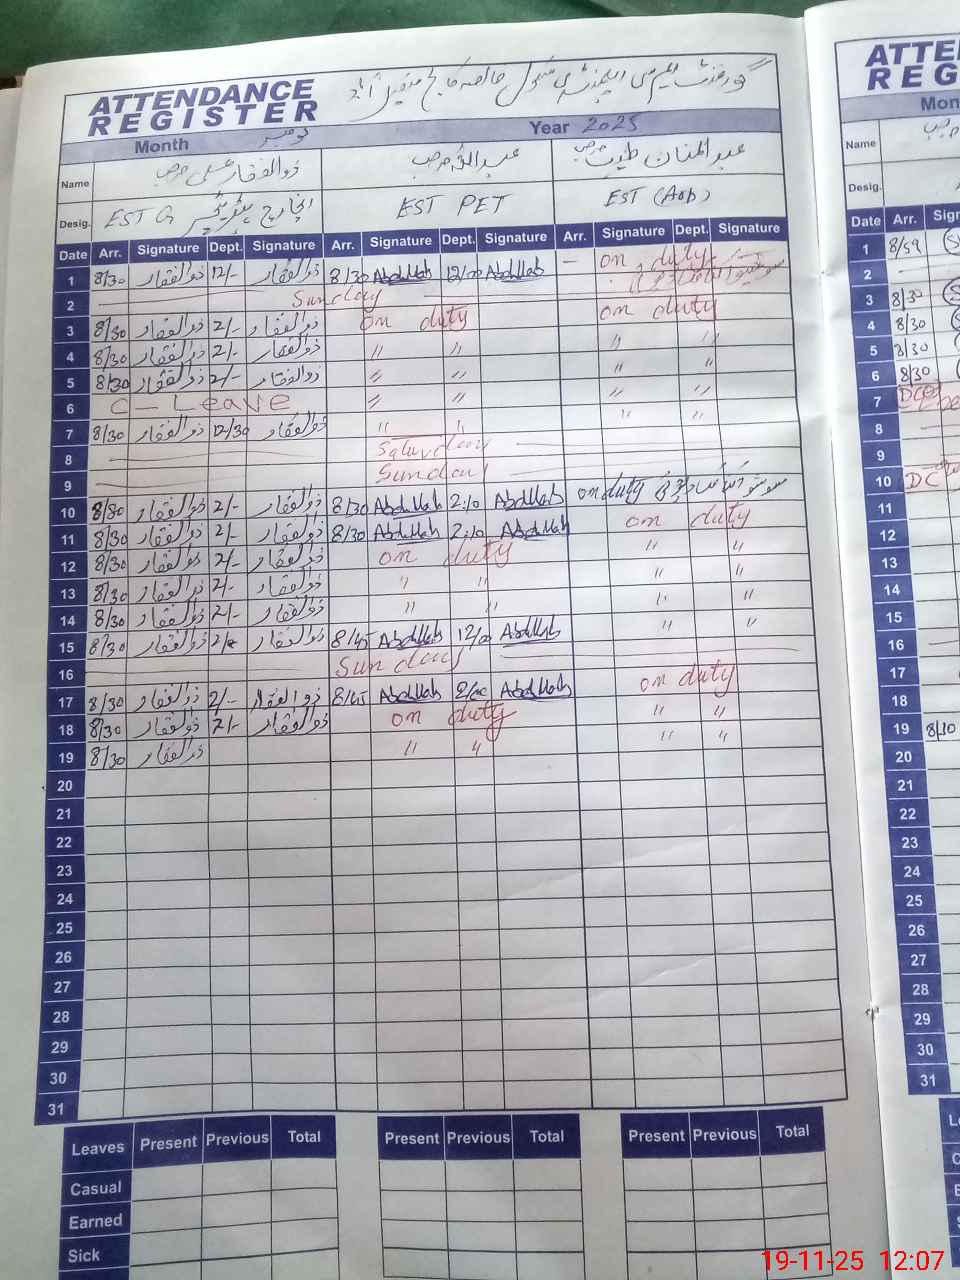 ATTENDANCE REGISTER گورنمنٹ ایم سی ایلیمنٹری سکول خالصہ کالج فیصل آباد
Month نومبر Year 2025
Name ذوالفقار علی صاحب عبداللہ صاحب عبدالمنان طیب صاحب
Desig. EST G انچارج ہیڈ ٹیچر EST PET EST (Arb)
Date Arr. Signature Dept. Signature Arr. Signature Dept. Signature Arr. Signature Dept. Signature
1 8/30 ذوالفقار 12/- ذوالفقار 8/30 Abdullah 12/00 Abdullah — on duty
2 Sunday
3 8/30 ذوالفقار 2/- ذوالفقار on duty on duty
4 8/30 ذوالفقار 2/- ذوالفقار " " " "
5 8/30 ذوالفقار 2/- ذوالفقار " " " "
6 C - Leave " " " "
7 8/30 ذوالفقار 12/30 ذوالفقار " " " "
8 Saturday
9 Sunday
10 8/30 ذوالفقار 2/- ذوالفقار 8/30 Abdullah 2/10 Abdullah on duty
11 8/30 ذوالفقار 2/- ذوالفقار 8/30 Abdullah 2/10 Abdullah on duty
12 8/30 ذوالفقار 2/- ذوالفقار on duty " "
13 8/30 ذوالفقار 2/- ذوالفقار " " " "
14 8/30 ذوالفقار 2/- ذوالفقار " " " "
15 8/30 ذوالفقار ذوالفقار 8/45 Abdullah 12/00 Abdullah " "
16 Sunday
17 8/30 ذوالفقار 2/- ذوالفقار 8/45 Abdullah 2/00 Abdullah on duty
18 8/30 ذوالفقار 2/- ذوالفقار on duty " "
19 8/30 ذوالفقار " " " "
20
21
22
23
24
25
26
27
28
29
30
31
Leaves Present Previous Total Present Previous Total Present Previous Total
Casual
Earned
Sick
ATTEN
REG
Mon
Name
Desig.
Date Arr. Sign
1 8/59
2
3 8/30
4 8/30
5 8/30
6 8/30
7
8
9
10 DC
11
12
13
14
15
16
17
18
19 8/10
20
21
22
23
24
25
26
27
28
29
30
31
19-11-25 12:07